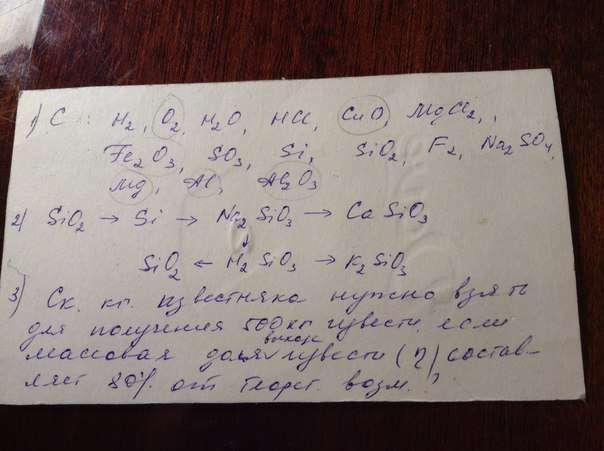 1) C : H2, O2, H2O, HCl, CuO, MgCl2,
Fe2O3, SO3, Si, SiO2, F2, Na2SO4,
Mg, Al, Al2O3
2) SiO2 → Si → Na2SiO3 → CaSiO3
↓
SiO2 ← H2SiO3 → K2SiO3
3) Ск. кг. известняка нужно взять
для получения 500 кг извести, если
выхода
массовая доля извести (η) состав-
ляет 80% от теорет. возм. ?